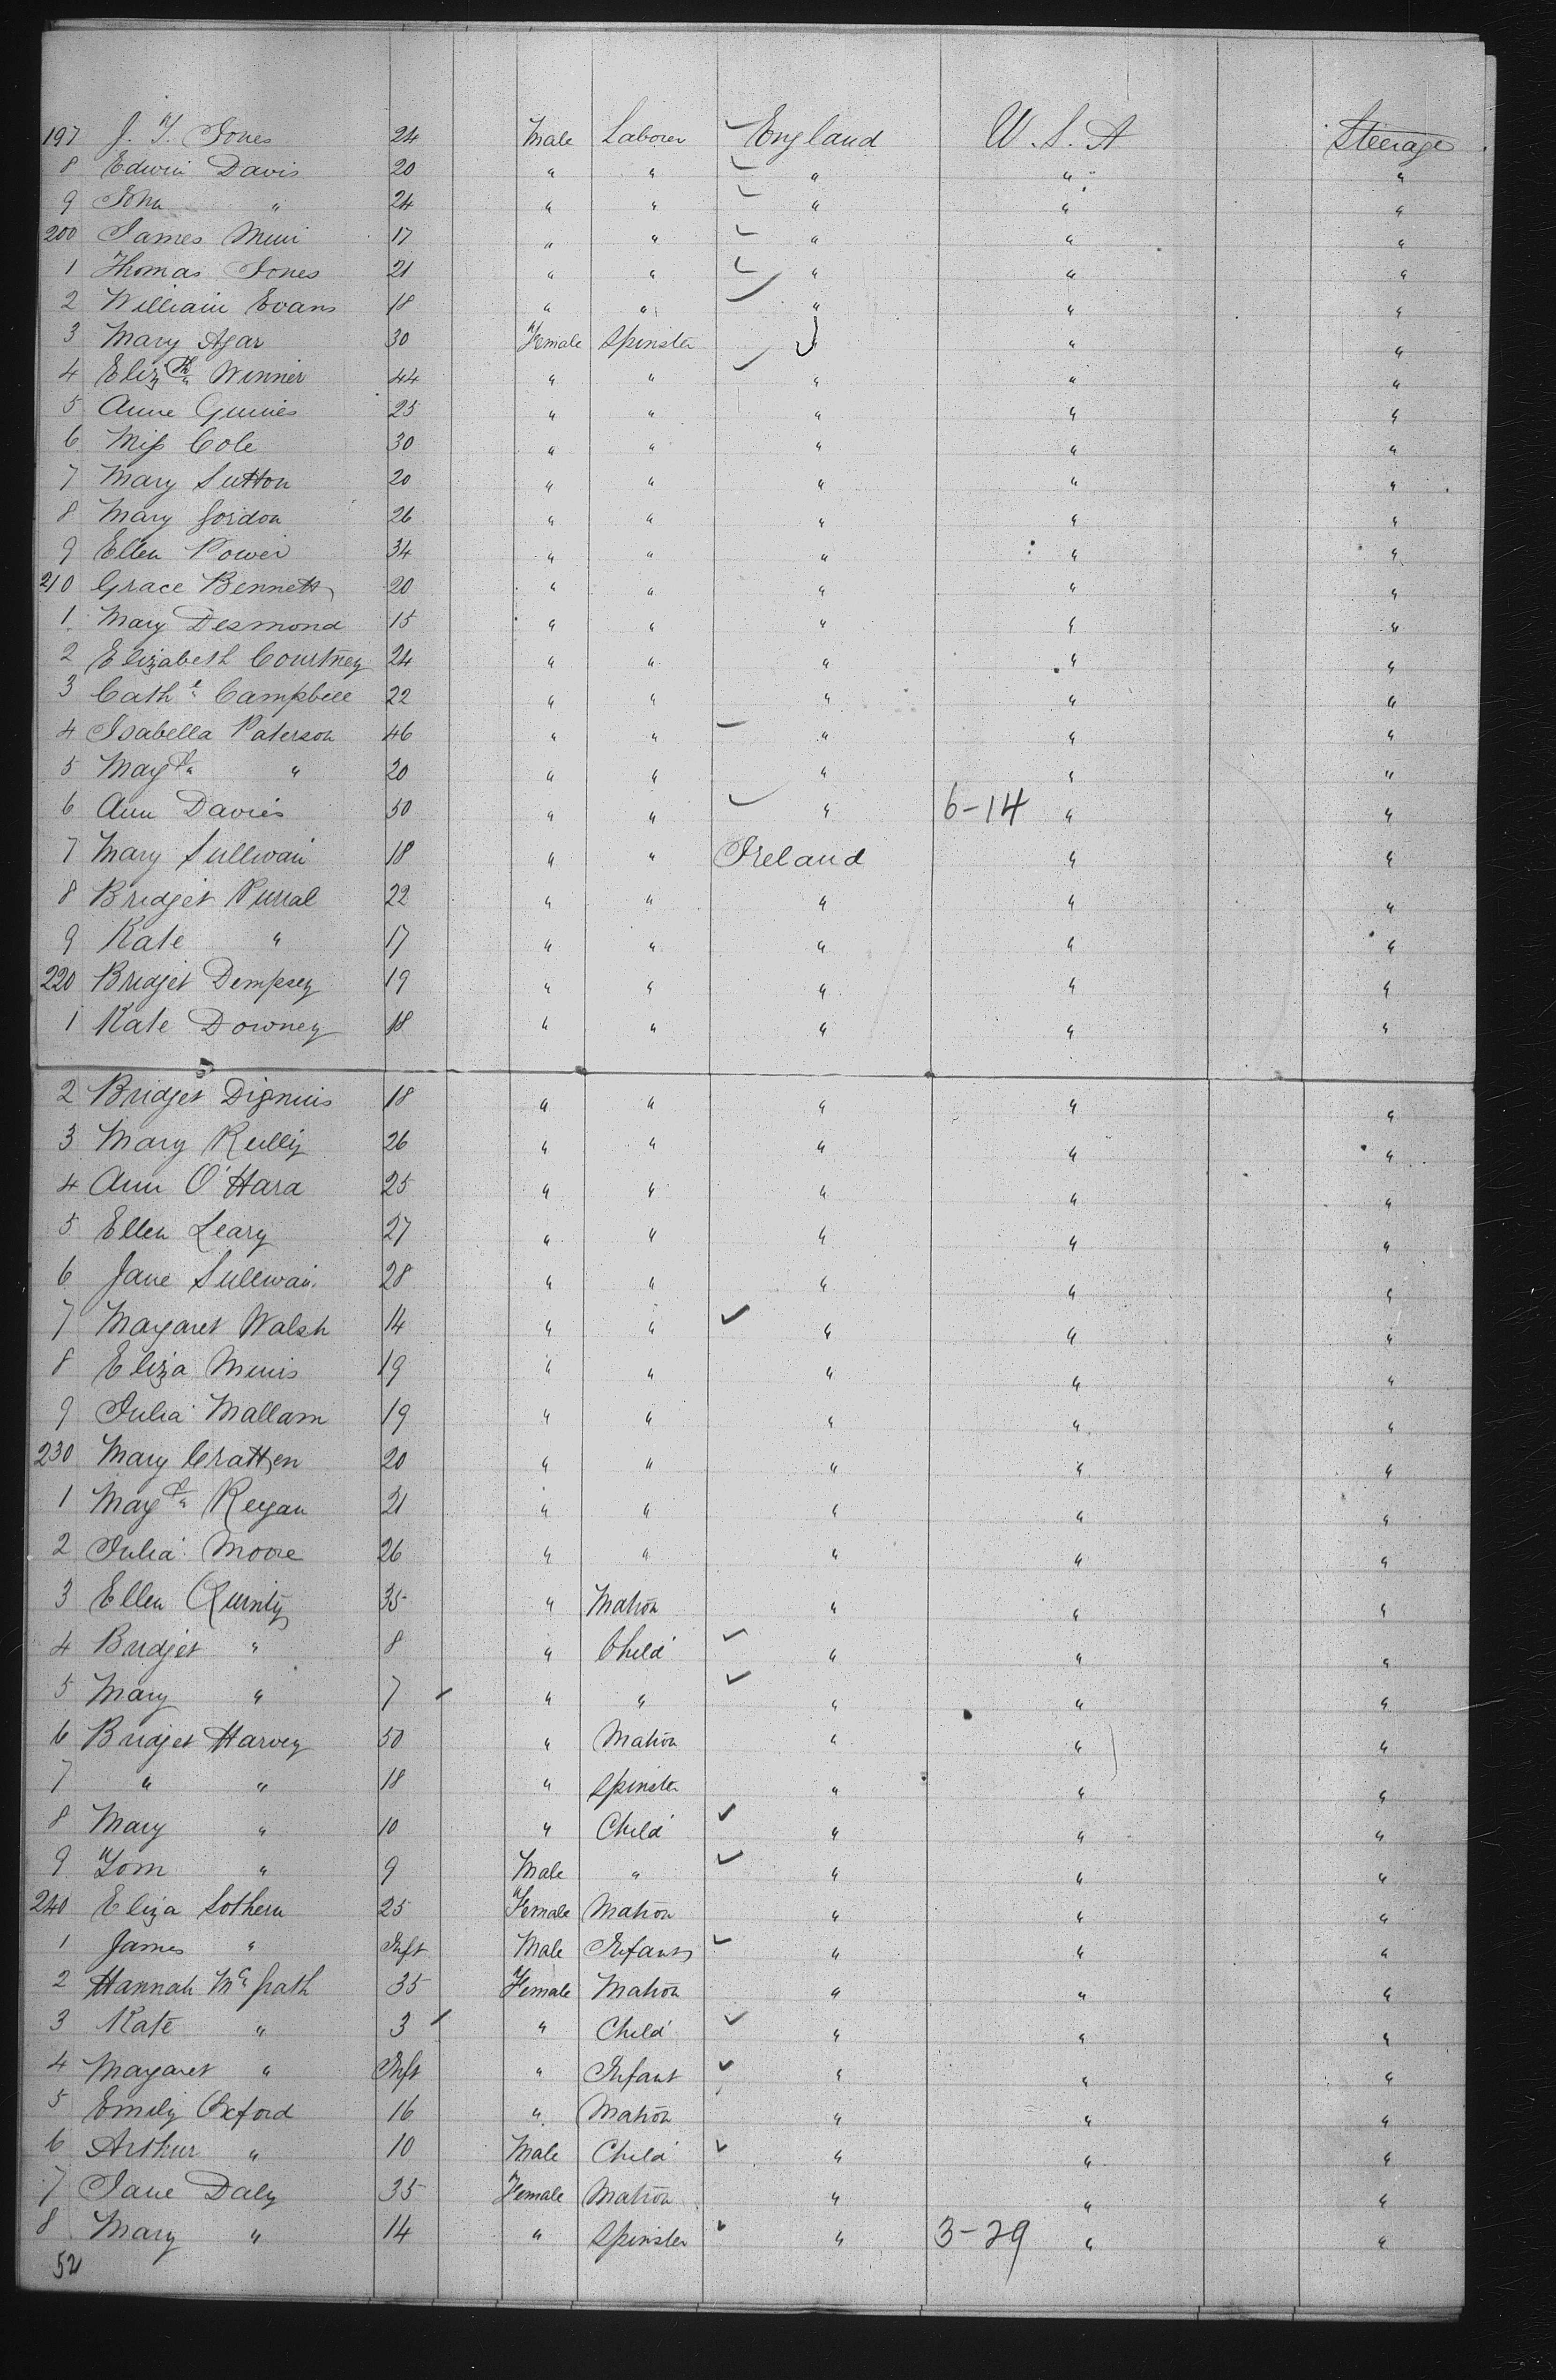 197 J. T. Jones 24 Male Laborer England U. S. A Steerage
8 Edwin Davis 20 " " " " "
9 John " 24 " " " " "
200 James Muir 17 " " " " "
1 Thomas Jones 21 " " " " "
2 William Evans 18 " " " " "
3 Mary Agar 30 Female Spinster " " "
4 Eliz.th Winner 44 " " " " "
5 Anne 25 " " " " "
6 Miss Cole 30 " " " " "
7 Mary Sutton 20 " " " " "
8 Mary Gordon 26 " " " " "
9 Ellen Power 34 " " " " "
210 Grace Bennett 20 " " " " "
1 Mary Desmond 15 " " " " "
2 Elizabeth Courtney 24 " " " " "
3 Cath.e Campbell 22 " " " " "
4 Isabella Paterson 46 " " " " "
5 Marg.t " 20 " " " " "
6 Ann Davies 50 " " " 6-14 " "
7 Mary Sullivan 18 " " Ireland " "
8 Bridget 22 " " " " "
9 Kate " 17 " " " " "
220 Bridget Dempsey 19 " " " " "
1 Kate Downey 18 " " " " "
2 Bridget 18 " " " " "
3 Mary Reilly 26 " " " " "
4 Ann O'Hara 25 " " " " "
5 Ellen Leary 27 " " " " "
6 Jane Sullivan 28 " " " " "
7 Margaret Walsh 14 " " " " "
8 Eliza 19 " " " " "
9 Julia Mallam 19 " " " " "
230 Mary Cratten 20 " " " " "
1 Marg.t Regan 21 " " " " "
2 Julia Moore 26 " " " " "
3 Ellen 35 " Matron " " "
4 Bridget " 8 " Child " " "
5 Mary " 7 " " " " "
6 Bridget Harvey 50 " Matron " " "
7 " " 18 " Spinster " " "
8 Mary " 10 " Child " " "
9 Tom " 9 Male " " " "
240 Eliza Sothern 25 Female Matron " " "
1 James " Inft Male Infant " " "
2 Hannah McGrath 35 Female Matron " " "
3 Kate " 3 " Child " " "
4 Margaret " Inft " Infant " " "
5 Emily Oxford 16 " Matron " " "
6 Arthur " 10 Male Child " " "
7 Jane Daly 35 Female Matron " " "
8 Mary " 14 " Spinster " 3-29 " "
52